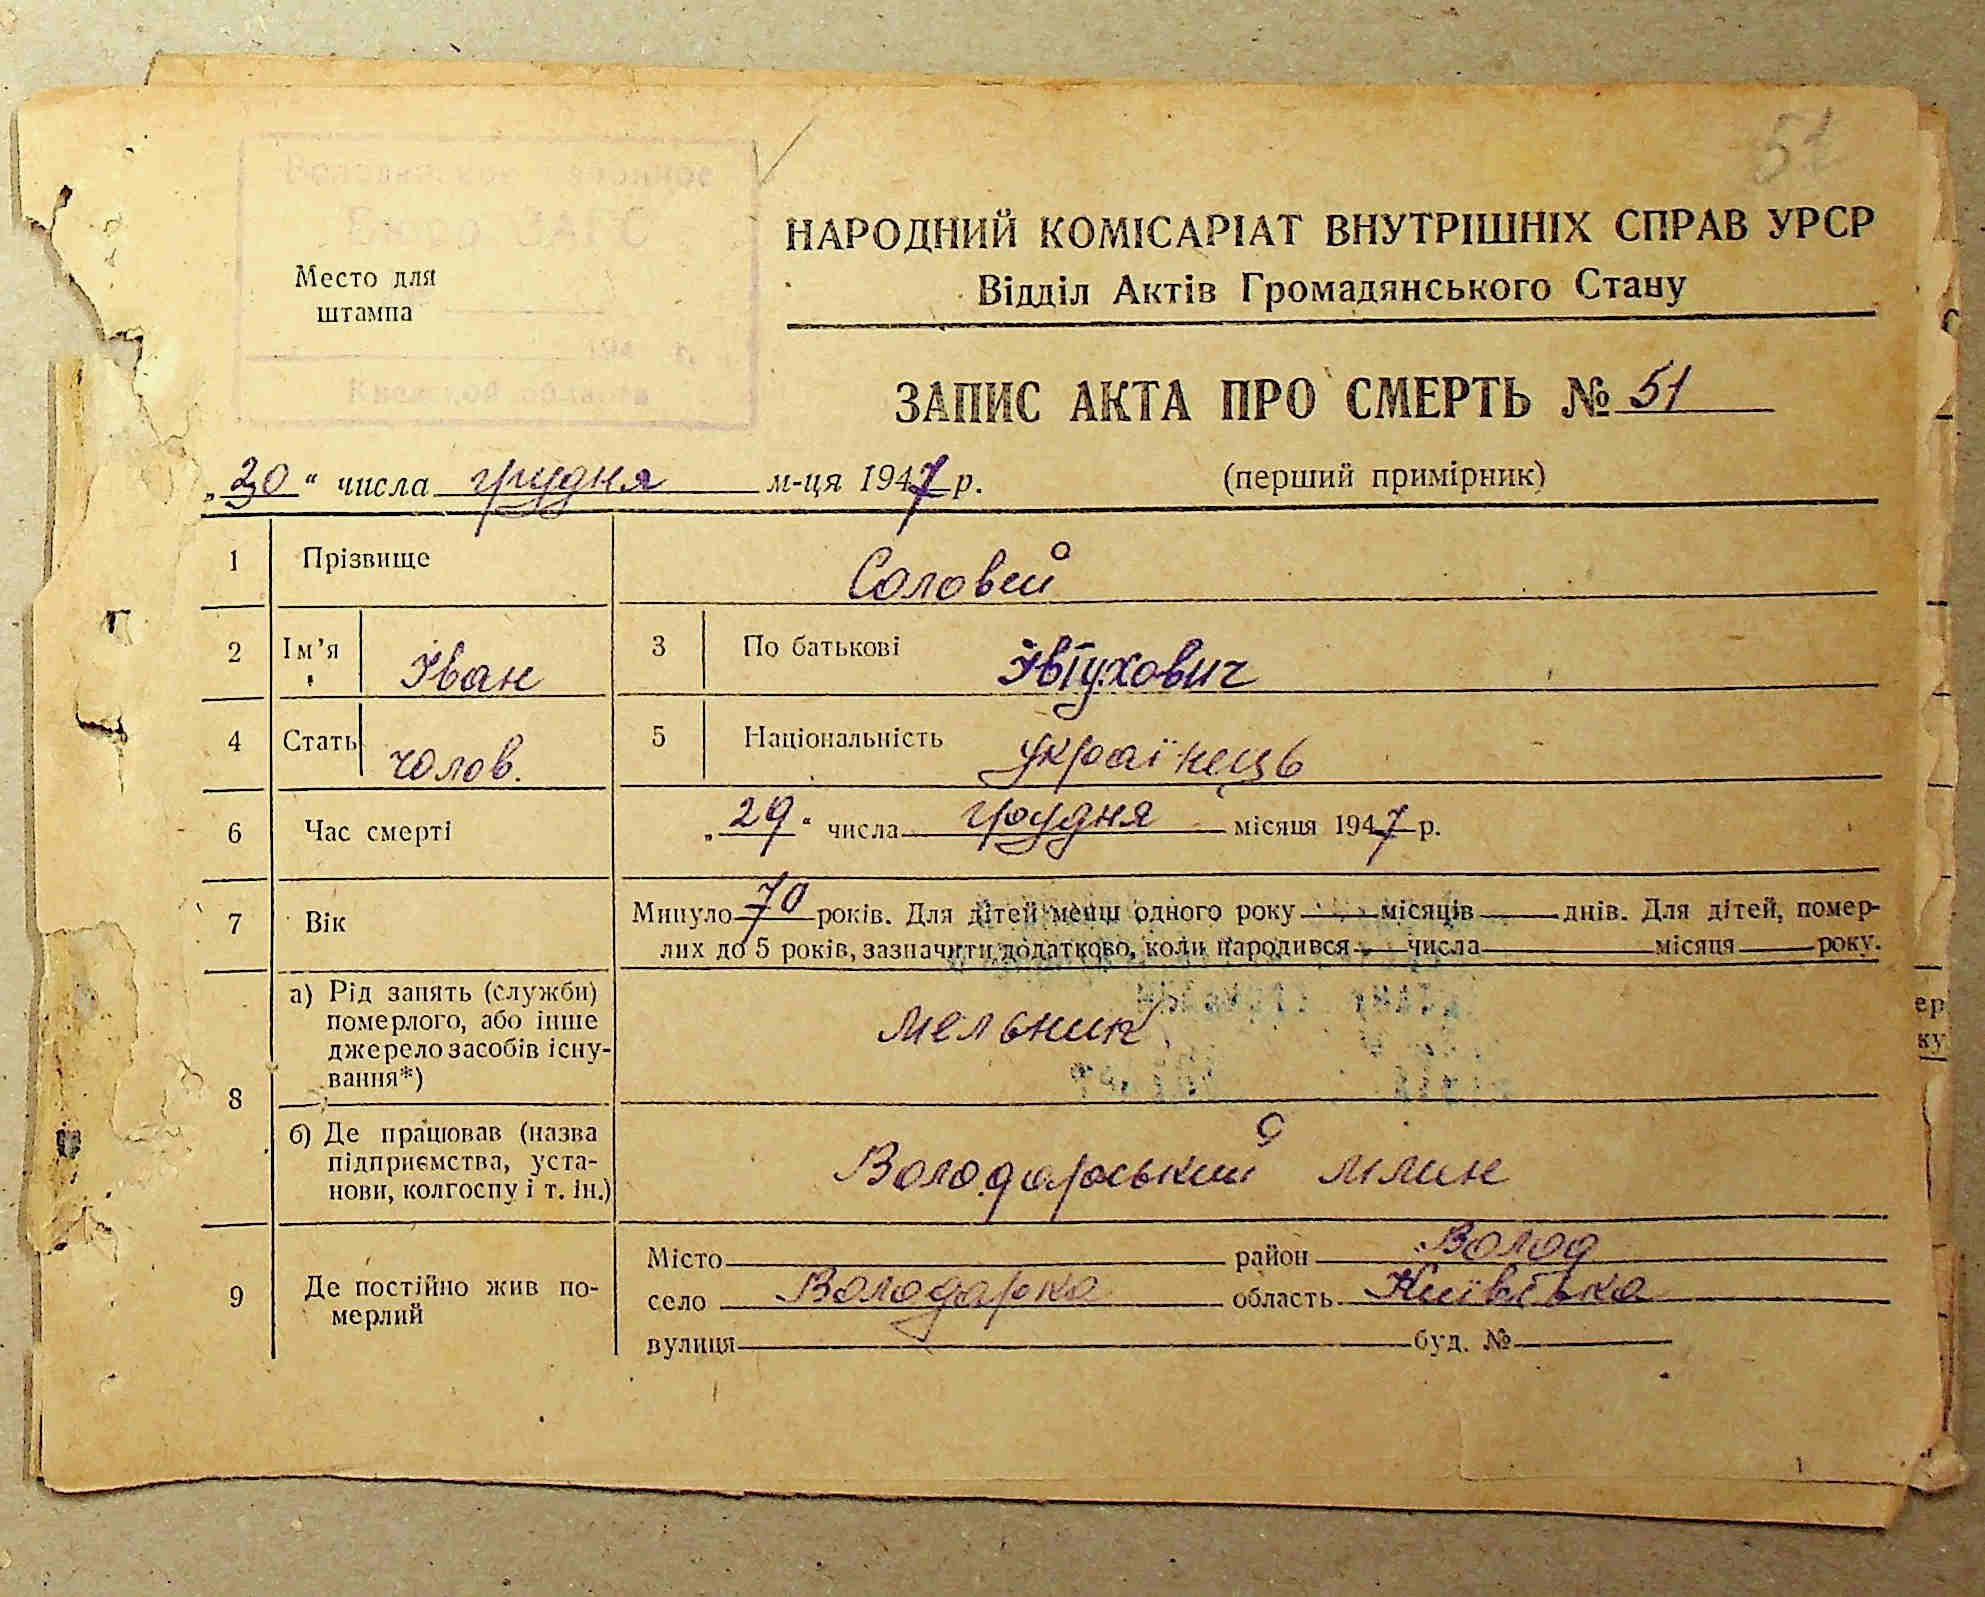 51
Бюро ЗАГС
Место для
штампа
194 г.
Киевской области
НАРОДНИЙ КОМІСАРІАТ ВНУТРІШНІХ СПРАВ УРСР
Відділ Актів Громадянського Стану
ЗАПИС АКТА ПРО СМЕРТЬ № 51
„30“ числа грудня м-ця 1947 р.
(перший примірник)
1 Прізвище Соловей
2 Ім'я Іван 3 По батькові Івтухович
4 Стать чолов. 5 Національність українець
6 Час смерті „29“ числа грудня місяця 1947 р.
7 Вік Минуло 70 років. Для дітей менш одного року місяців днів. Для дітей, помер-
лих до 5 років, зазначити додатково, коли народився числа місяця року.
8 а) Рід занять (служби)
померлого, або інше
джерело засобів існу-
вання*)
мельник
б) Де працював (назва
підприємства, уста-
нови, колгоспу і т. ін.)
Володарський млин
9 Де постійно жив по-
мерлий
Місто район Волод
село Володарка область Київська
вулиця буд. №
1
ер
ку